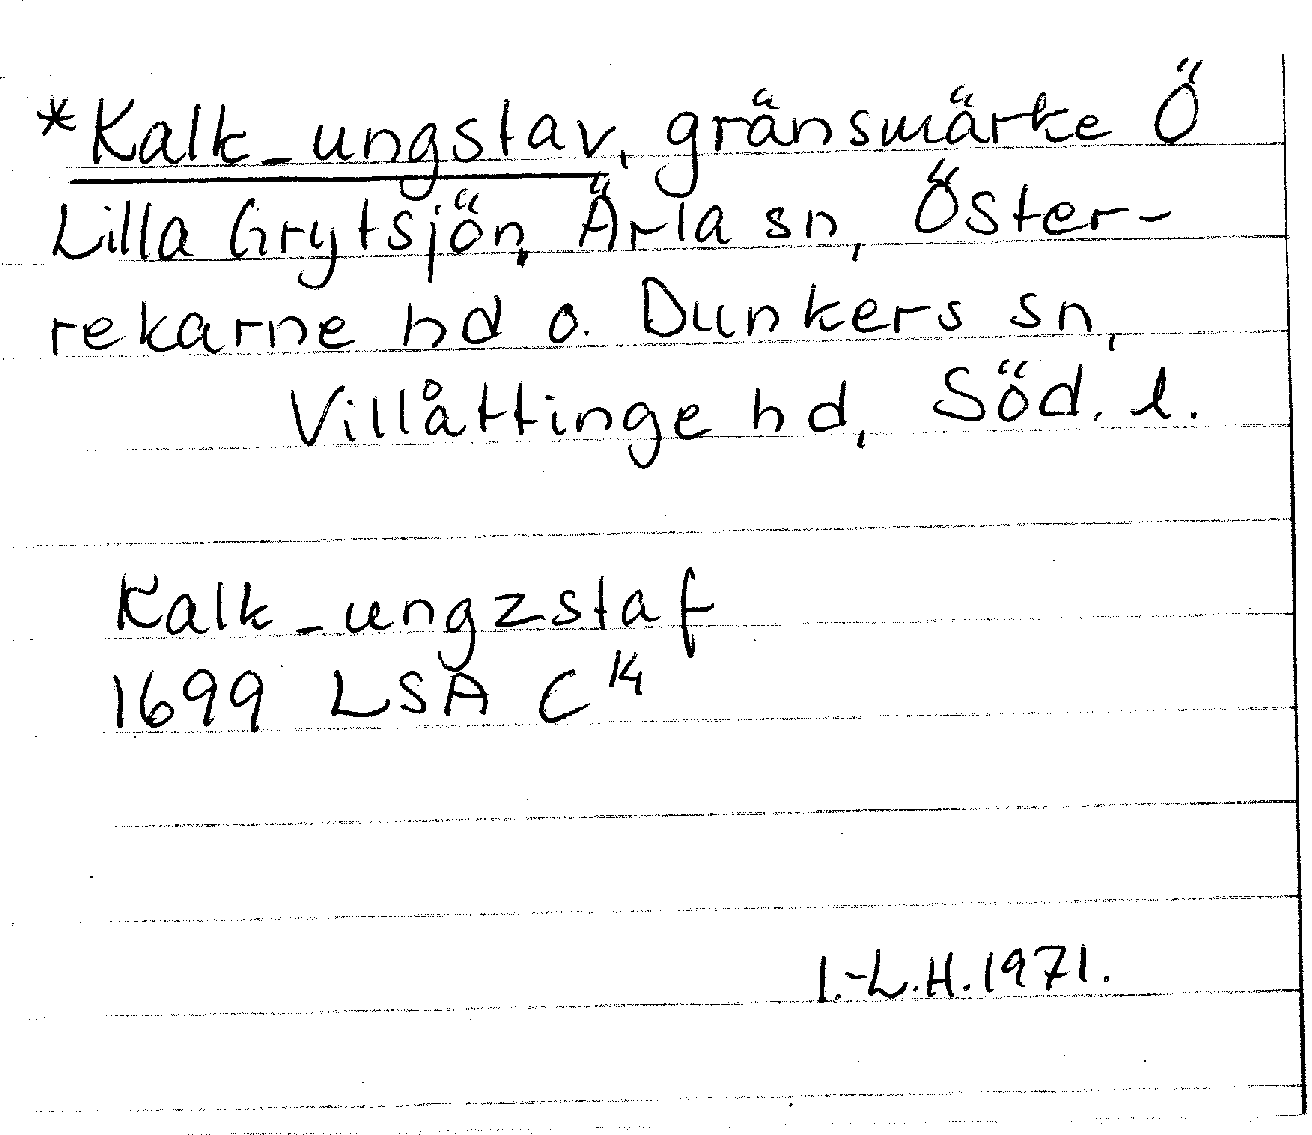 *Kalk_ungstav, gränsmärke Ö
Lilla Grytsjön, Ärla sn, Öster-
rekarne hd o. Dunkers sn,
Villåttinge hd, Söd. l.
Kalk_ungzstaf
1699 LSA C 14
I.-L.H.1971.